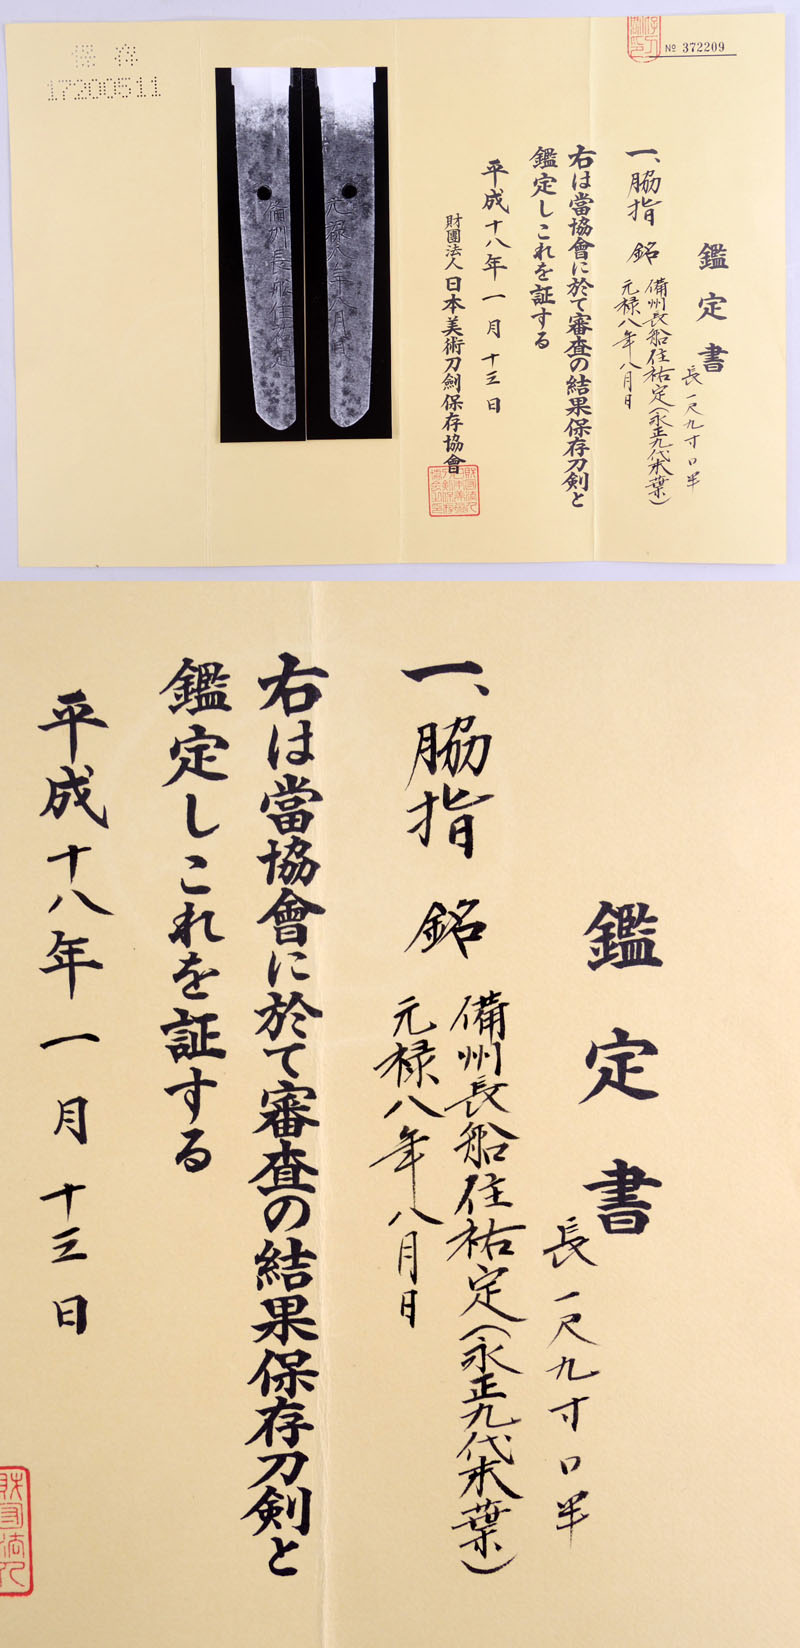 保存
17200511
№ 372209
鑑定書
長 一尺九寸口半
一、脇指 銘 備州長船住祐定(永正九代末葉)
元禄八年八月日
右は當協會に於て審査の結果保存刀剣と
鑑定しこれを証する
平成十八年一月十三日
財團法人日本美術刀劍保存協會
元禄八年八月日
備州長船住祐定
鑑定書
長 一尺九寸口半
一、脇指 銘 備州長船住祐定(永正九代末葉)
元禄八年八月日
右は當協會に於て審査の結果保存刀剣と
鑑定しこれを証する
平成十八年一月十三日